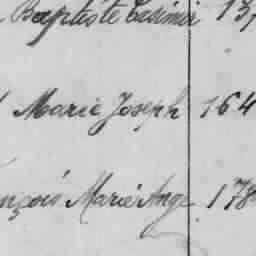 Baptiste Casimir 13
Marie Joseph 164
nçois Marie Ange 178